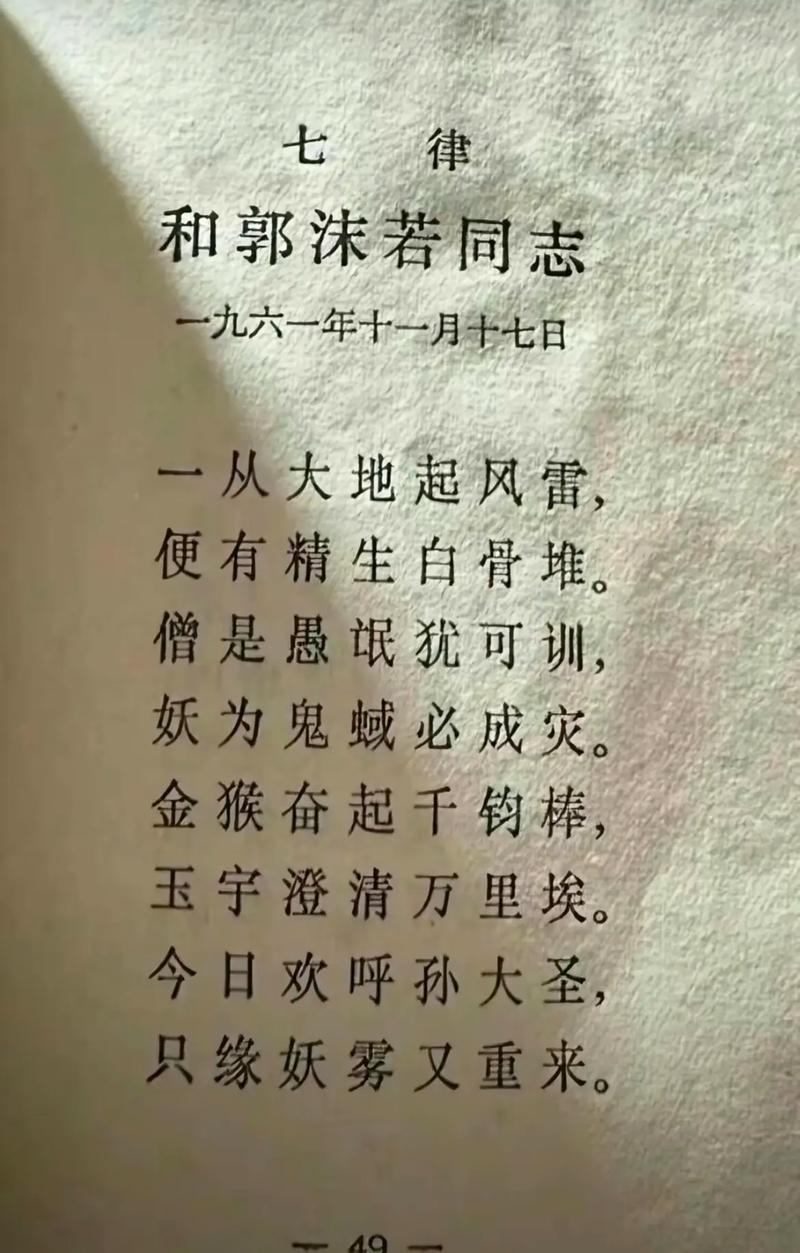 七 律
和郭沫若同志
一九六一年十一月十七日
一从大地起风雷，
便有精生白骨堆。
僧是愚氓犹可训，
妖为鬼蜮必成灾。
金猴奋起千钧棒，
玉宇澄清万里埃。
今日欢呼孙大圣，
只缘妖雾又重来。
— 49 —